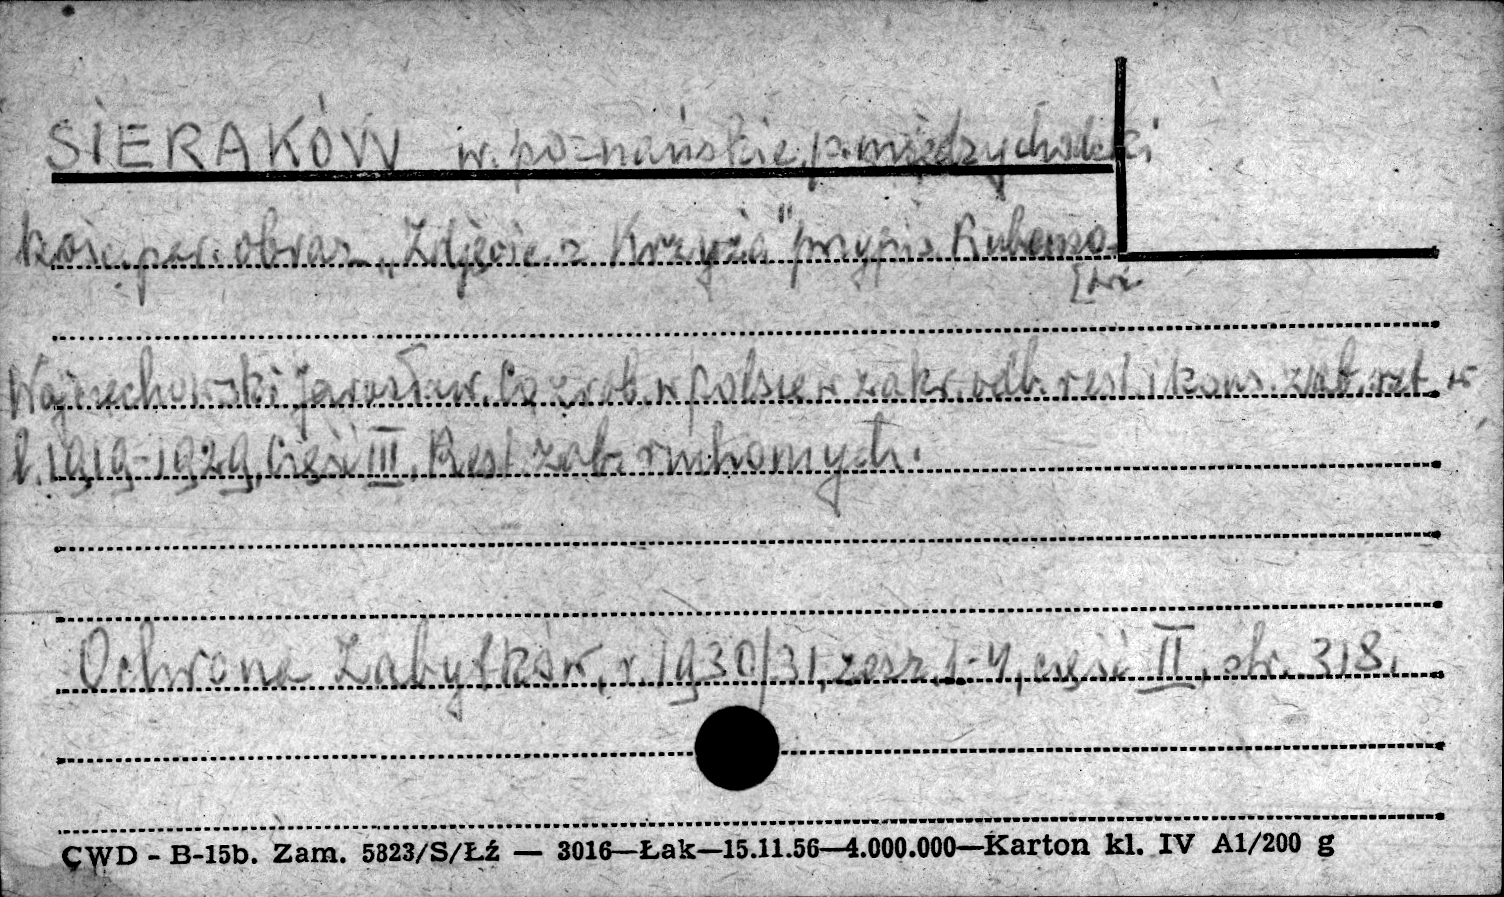 SIERAKÓW w. poznańskie, p. międzychodzki
kośc. par. obraz „Zdjęcie z Krzyża" przypis. Rubenso-
[wi
Wojciechowski Jarosław. Co zrob. w Polsce w zakr. odb. rest. i kons. zab. szt. w
l. 1919-1929. Część III. Rest. zab. ruchomych.
Ochrona Zabytków, r. 1930/31, zesz. 1-4, część II, str. 318.
CWD - B-15b. Zam. 5823/S/Łź — 3016—Łak—15.11.56—4.000.000—Karton kl. IV A1/200 g